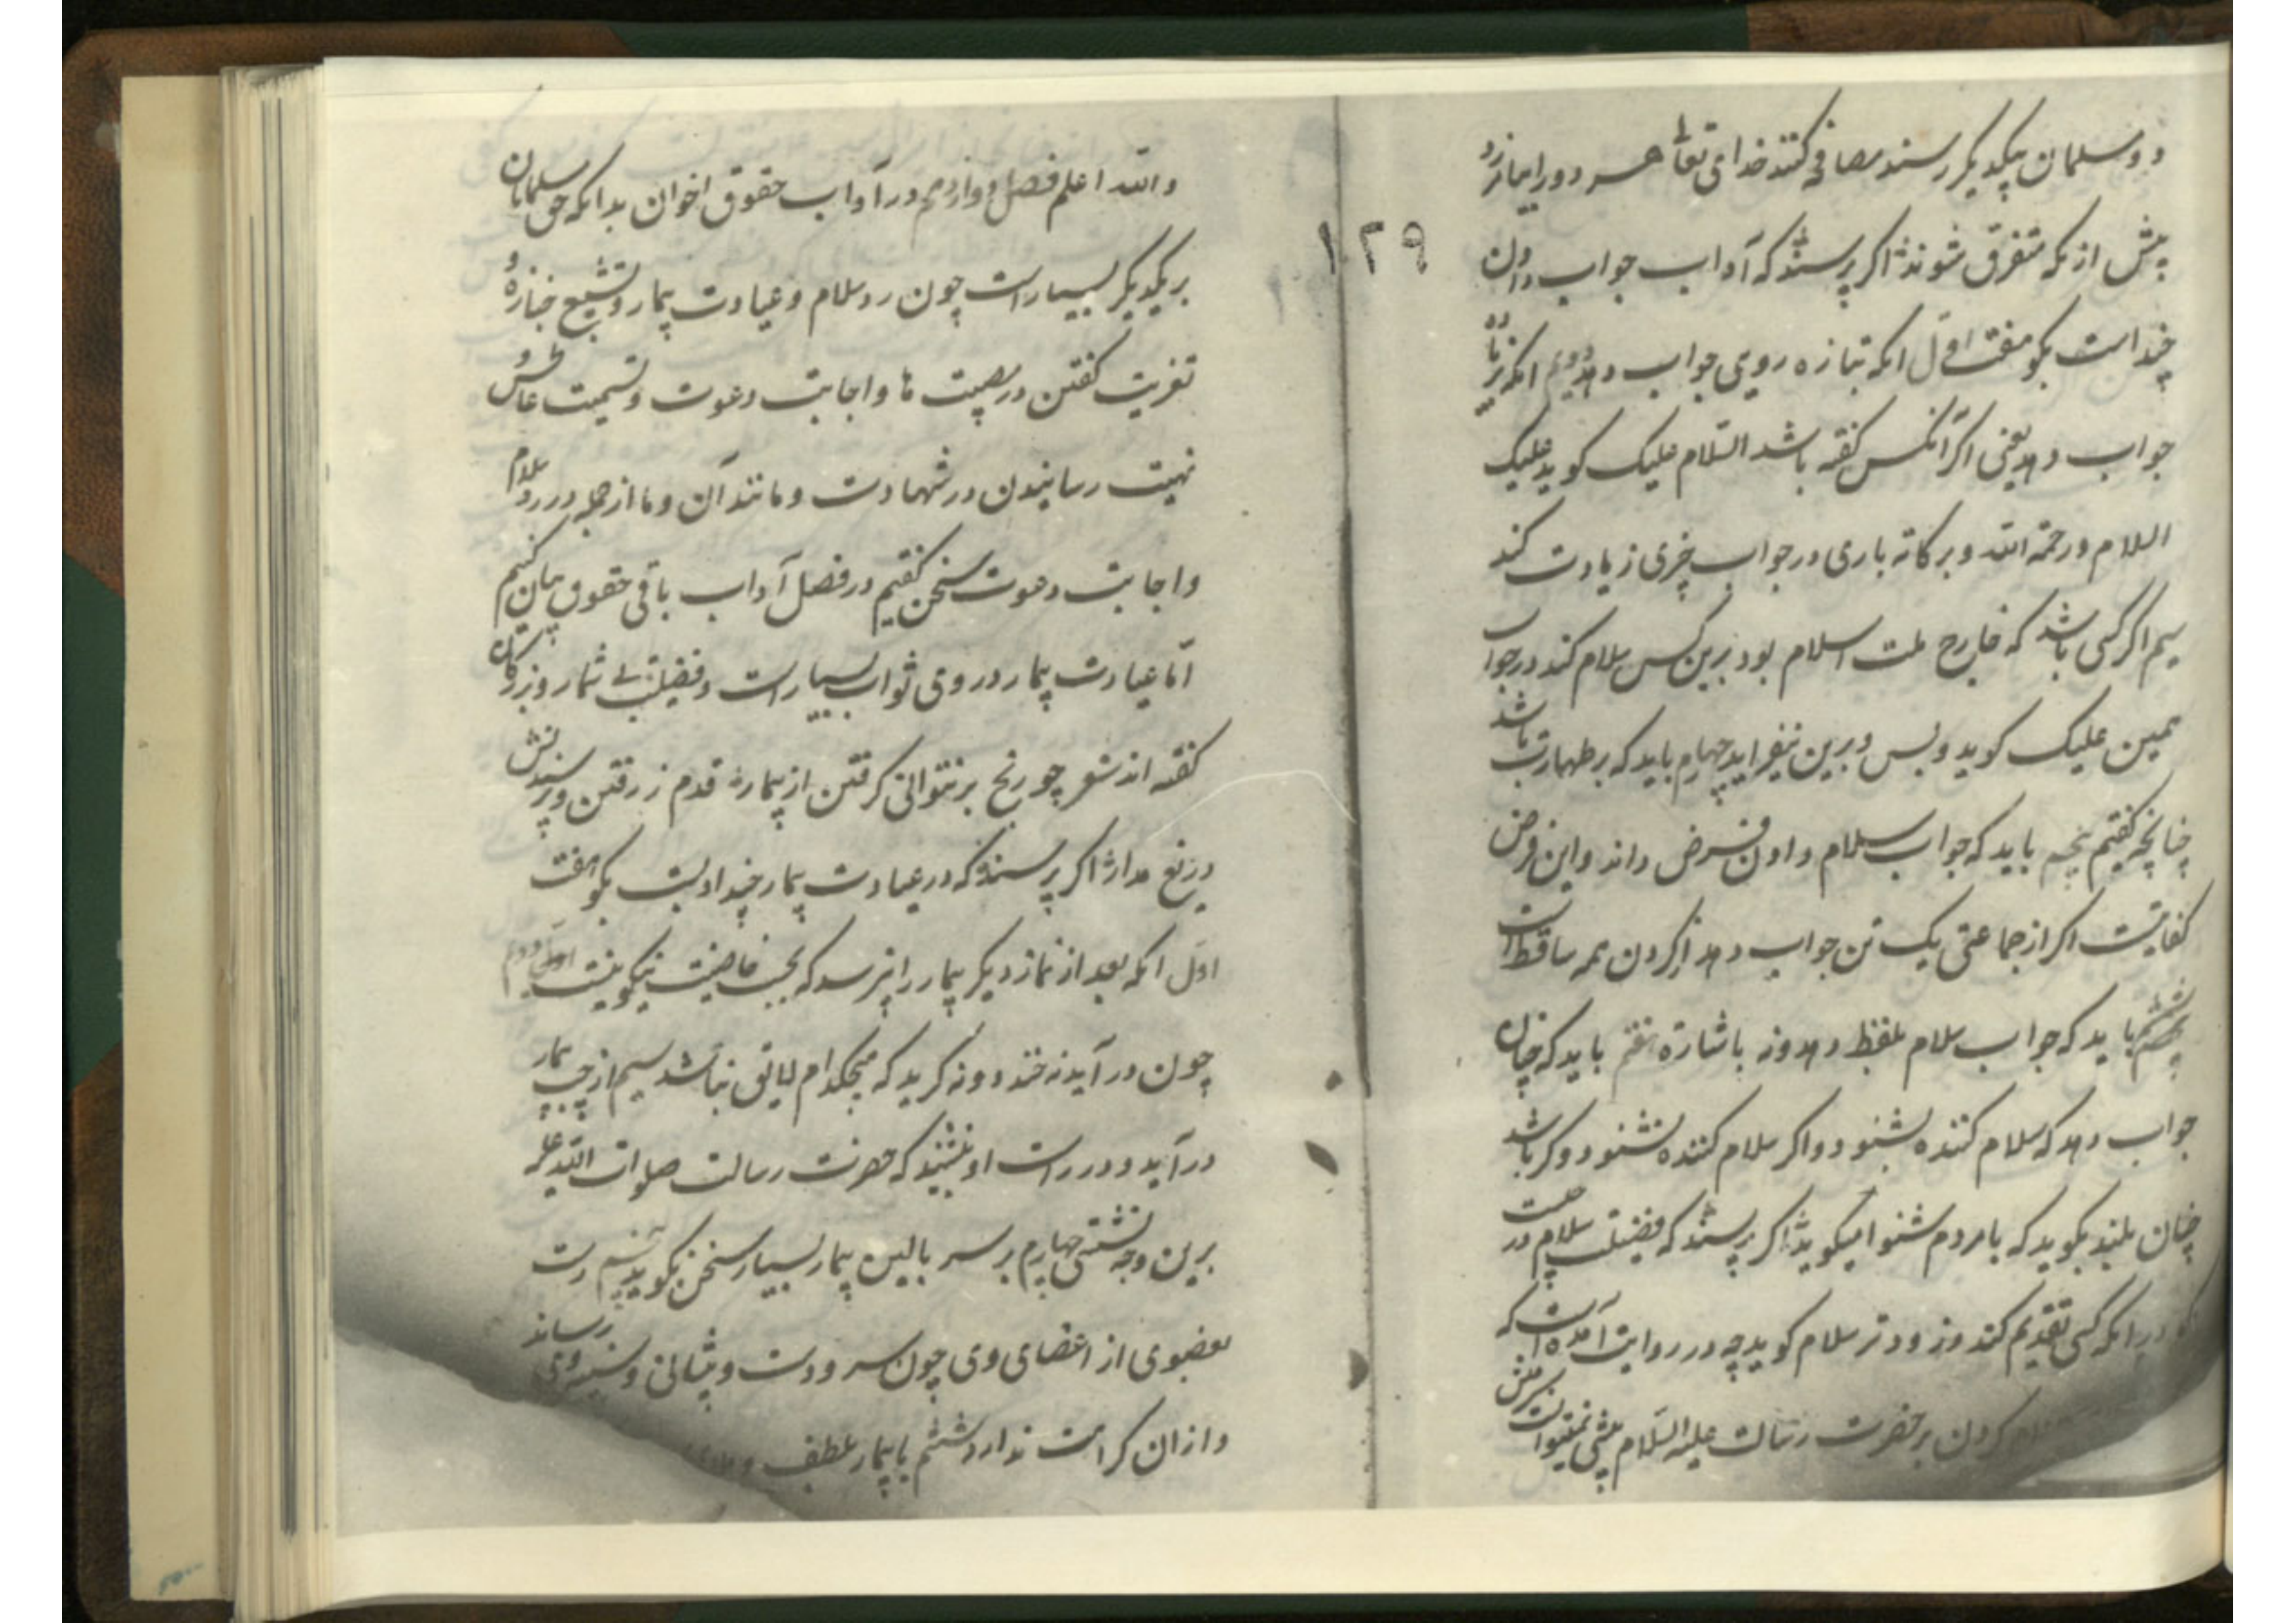 دو مسلمان بیکدیگر رسند مصافحه کنند خدای تعالی هر دو را بیامرزد
پیش از انکه متفرق شوند اگر پرسند که آداب جواب دادن
چند است بگو هفت اول انکه بتازه رویی جواب دهد دویم انکه زیاده
جواب دهد یعنی اگر آنکس گفته باشد السلام علیک گوید علیک
السلام ورحمة الله وبرکاته باری در جواب چیزی زیادت کند
سیم اگر کسی باشد که خارج ملت اسلام بود برین کس سلام کند در جواب
همین علیک گوید وبس و برین نیفزاید چهارم باید که بر طهارت باشد
چنانچه گفتیم پنجم باید که جواب سلام دادن فرض داند واین فرض
کفایتست اگر از جماعتی یک تن جواب دهد از گردن همه ساقط است
ششم باید که جواب سلام بلفظ دهد ونه باشارة هفتم باید که چنان
جواب دهد که سلام کننده بشنود واگر سلام کننده نشنود وکر باشد
چنان بلند بگوید که با مردم شنوا میگوید اگر پرسند که فضیلت سلام در چیست
بگو در انکه کسی تقدیم کند وزودتر سلام گوید چه در روایت آمده است که
سلام کردن بر حضرت رسالت علیه السلام پیشی نمیتوانست گرفتن
۱۲۹
والله اعلم فصل دوازدهم در آداب حقوق اخوان بدانکه حق مسلمانان
بر یکدیگر بسیار است چون رد سلام و عیادت بیمار و تشییع جنازه و
تعزیت گفتن در مصیبت ها واجابت دعوت وتسمیت عاطس و
تهیت رسانیدن در شهادت ومانند آن وما از جمله در رد سلام
واجابت دعوت سخن گفتیم در فصل آداب باقی حقوق بیان کنیم
امّا عیادت بیمار در وی ثواب بسیار است وفضیلت بی شمار وبزرگان
گفته اند شعر چو رنج برنتوانی گرفتن از بیمار قدم ز رفتن وپرسیدنش
دریغ مدار اگر پرسند که در عیادت بیمار چند ادبست بگو هفت
اول انکه بعد از نماز دیگر بیمار را بپرسد که بحسب خاصیت نیکو نیست دوم
چون در آید نه خندد ونه گرید که هیچکدام لایق نباشد سیم از چپ بیمار
در آید ودر راست او نشیند که حضرت رسالت صلوات الله علیه
برین وجه نشستی چهارم بر سر بالین بیمار بسیار سخن نگوید پنجم دست
بعضوی از اعضای وی چون سر ودست وپیشانی وسینه وی رساند
وازان کراهت ندارد ششم با بیمار بلطف و